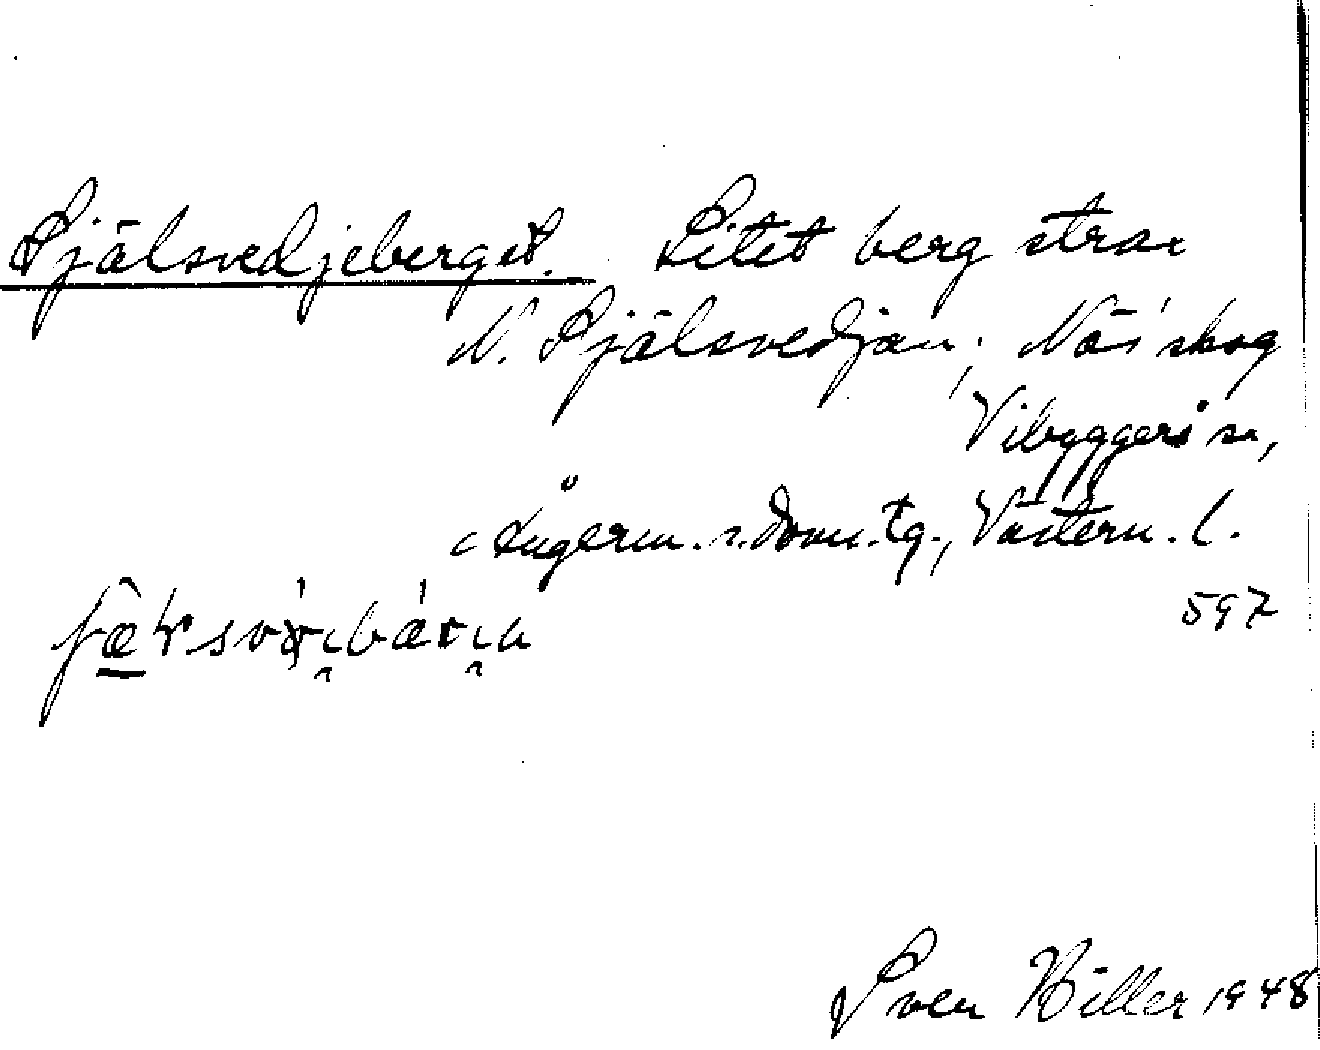 Själsvedjeberget. Litet berg strax
N. Själsvedjan; Näs' skog
Vibyggerå sn,
Ångerm. n. doms. tg., Västern. l.
597
Sven Hiller 1948